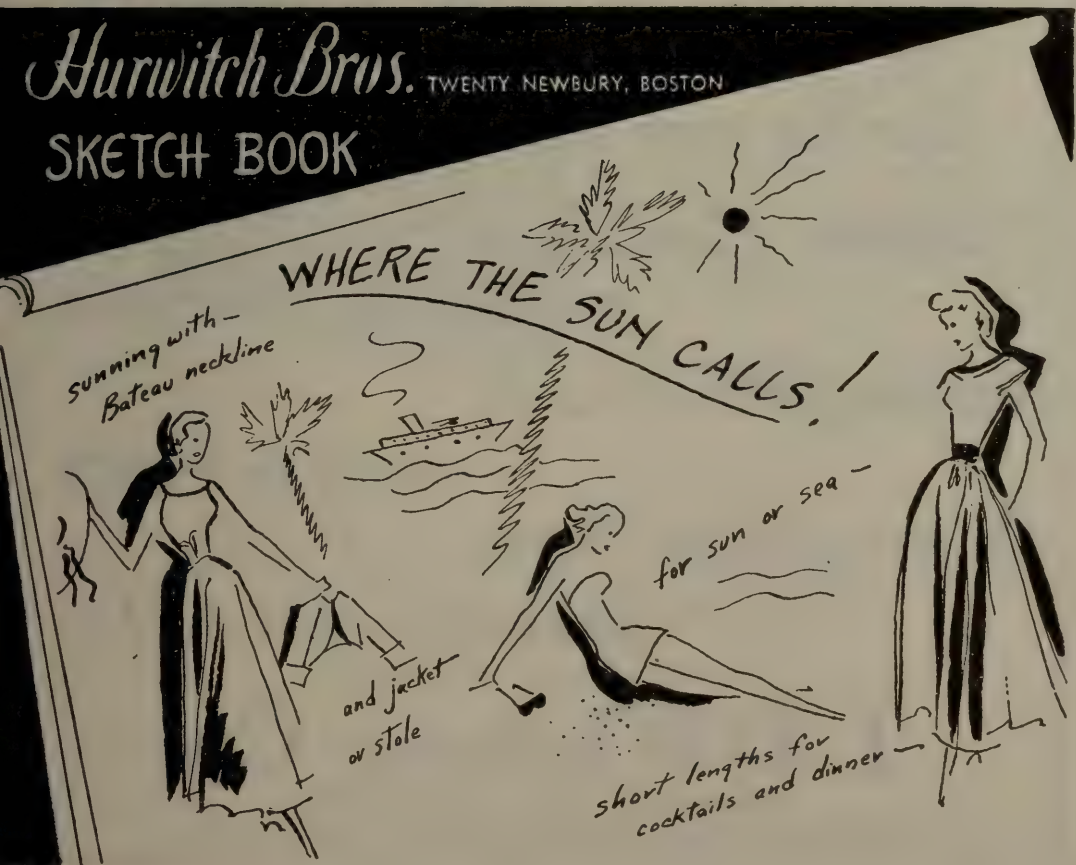 Hurwitch Bros. TWENTY NEWBURY, BOSTON
SKETCH BOOK
WHERE THE SUN CALLS!
sunning with —
Bateau neckline
for sun or sea —
and jacket
or stole
short lengths for
cocktails and dinner —